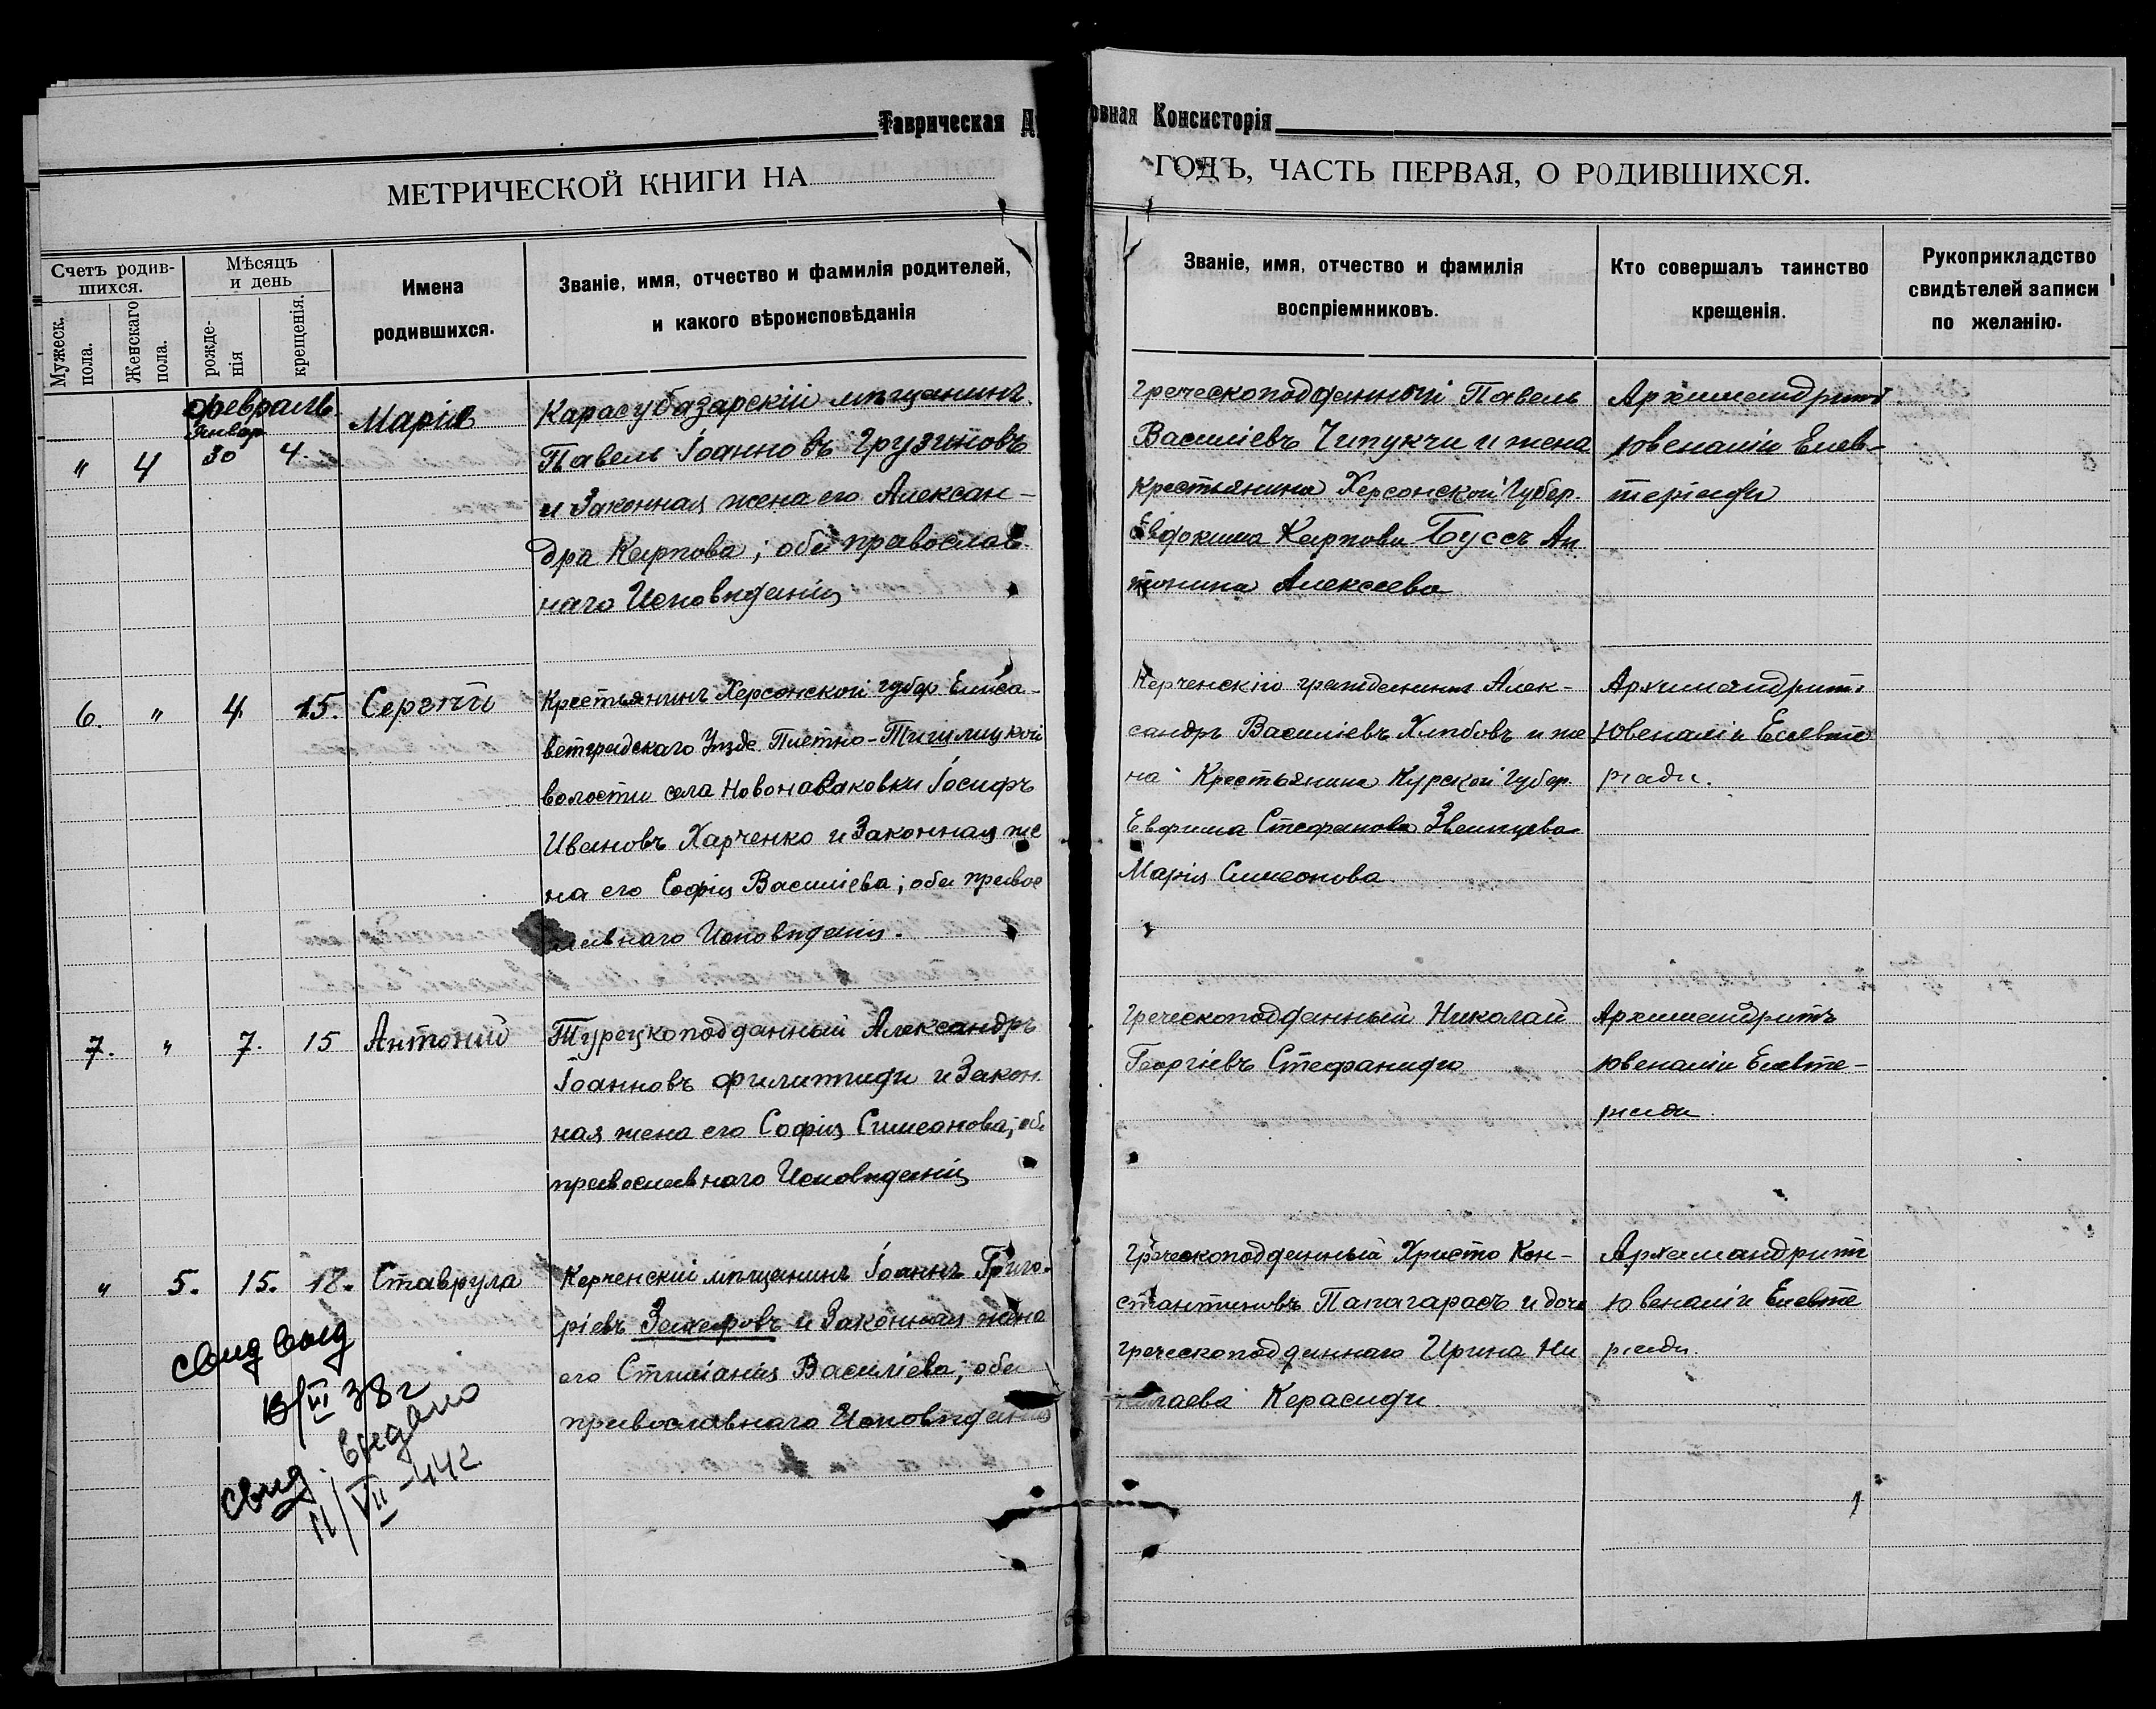 Таврическая Ду
овная Консисторія
МЕТРИЧЕСКОЙ КНИГИ НА
ГОДЪ, ЧАСТЬ ПЕРВАЯ, О РОДИВШИХСЯ.
Счетъ родив-
шихся.
Мужеск.
пола.
Женскаго
пола.
Мѣсяцъ
и день
рожде-
нія
крещенія.
Имена
родившихся.
Званіе, имя, отчество и фамилія родителей,
и какого вѣроисповѣданія
Званіе, имя, отчество и фамилія
воспріемниковъ.
Кто совершалъ таинство
крещенія.
Рукоприкладство
свидѣтелей записи
по желанію.
февраль
Январ
" 4 30 4. Марія
Карасубазарскій мѣщанинъ
Павелъ Іоанновъ Грузиновъ
и Законная жена его Алексан-
дра Карпова; оба православ-
наго Исповѣданія
Греческоподданный Павелъ
Василіевъ Чипукчи и жена
Крестьянина Херсонской Губер.
Евдокима Карпова Буссъ Ан
тонина Алексеева
Архимандритъ
Ювеналій Елев-
теріади
6. " 4. 15. Сергѣй
Крестьянинъ Херсонской губер Елиса-
ветградскаго Уѣзда Плетно-Ташлицкой
волости села Новопавловки Іосифъ
Ивановъ Харченко и Законная же
на его Софія Василіева; оба право
славнаго Исповѣданія.
Керченскій гражданинъ Алек-
сандръ Василіевъ Хлѣбовъ и же
на Крестьянина Курской Губер.
Евфима Стефанова
Марія Симеонова
Архимандритъ
Ювеналій Елевте
ріади.
7. " 7. 15 Антоній
Турецкоподданный Александръ
Іоанновъ Филиппиди и Закон
ная жена его Софія Симеонова; оба
православнаго Исповѣданія
Греческоподданный Николай
Георгіевъ Стефаниди
Архимандритъ
Ювеналій Елевте-
ріади
" 5. 15. 18. Ставрула
Керченскій мѣщанинъ Іоаннъ Григо-
ріевъ и Законная жена
его Стиліанія Василіева; оба
православнаго Исповѣданія
Греческоподданный Христо Кон-
стантиновъ Папагарасъ и дочь
Греческоподданнаго Ирина Ни
колаева Керасиди.
Архимандритъ
Ювеналій Елевте
ріади.
Свид выд
13/III 38 г
Свид. выдано
11/VII-44г.